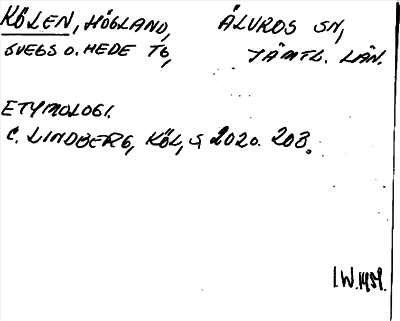 KÖLEN, HÖGLAND, ÄLVROS SN,
SVEGS O. HEDE TG, JÄMTL. LÄN.
ETYMOLOGI.
C. LINDBERG, KÖL, S 202 o. 203.
I.W.1959.